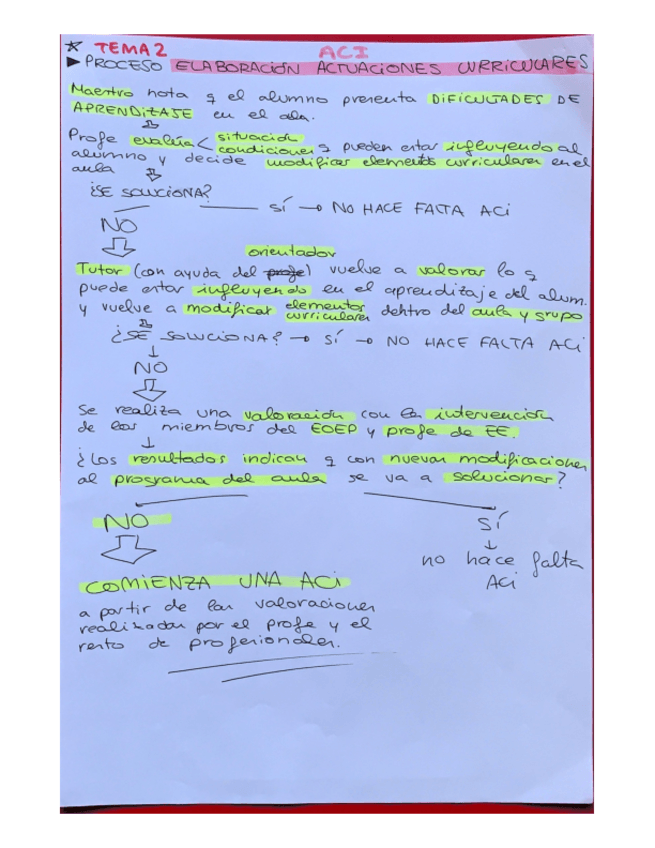 * TEMA 2 ACI
► PROCESO ELABORACIÓN ACTUACIONES CURRICULARES
Maestro nota q el alumno presenta DIFICULTADES DE
APRENDIZAJE en el aula.
Profe evalúa < situación
condiciones q pueden estar influyendo al
alumno y decide modificar elementos curriculares en el
aula
¿SE SOLUCIONA?
SÍ → NO HACE FALTA ACI
NO
orientador
Tutor (con ayuda del profe) vuelve a valorar lo q
puede estar influyendo en el aprendizaje del alum.
y vuelve a modificar elementos curriculares dentro del aula y grupo
¿SE SOLUCIONA? → SÍ → NO HACE FALTA ACI
NO
Se realiza una valoración con la intervención
de los miembros del EOEP y profe de EE.
¿Los resultados indican q con nuevas modificaciones
al programa del aula se va a solucionar?
NO SÍ
no hace falta
ACI
COMIENZA UNA ACI
a partir de las valoraciones
realizadas por el profe y el
resto de profesionales.